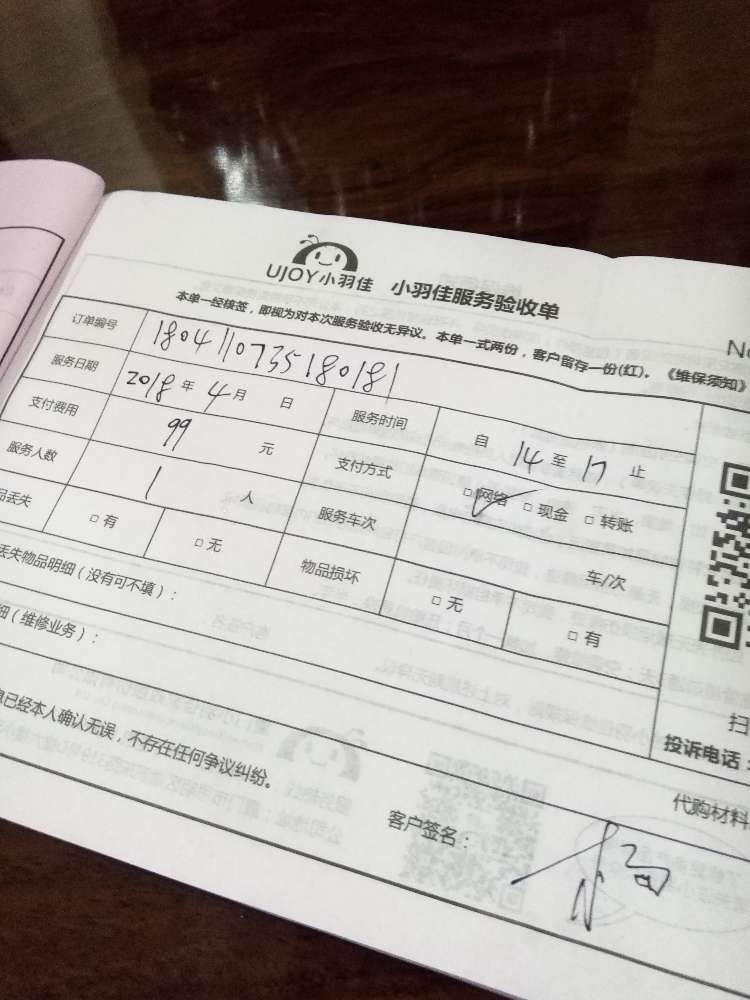 UJOY小羽佳 小羽佳服务验收单
本单一经核签，即视为对本次服务验收无异议。本单一式两份，客户留存一份(红)。《维保须知》
订单编号 1804110735180181
服务日期 2018年 4月 日 服务时间 自 14 至 17 止
支付费用 99 元 支付方式 □网络 □现金 □转账
服务人数 1 人 服务车次 车/次
品丢失 □有 □无 物品损坏 □无 □有
丢失物品明细（没有可不填）：
细（维修业务）：
扫
投诉电话：
息已经本人确认无误，不存在任何争议纠纷。
代购材料
客户签名：